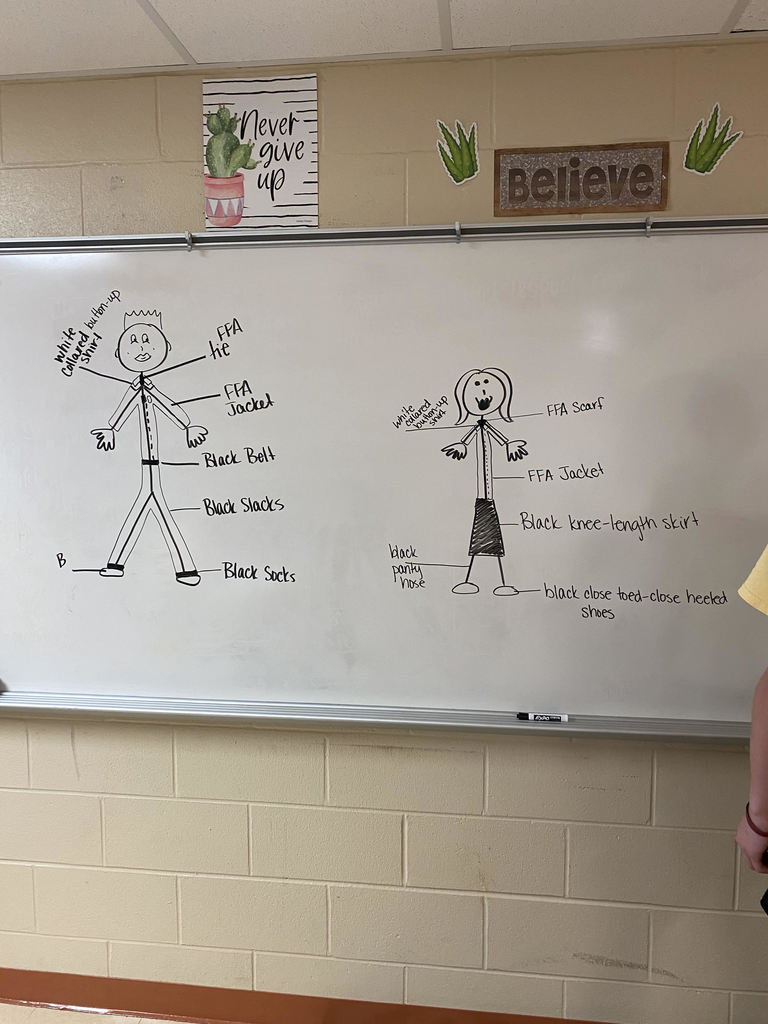 Never
give
up
Believe
white
collared button-up
shirt
FFA
tie
FFA
Jacket
Black Belt
Black Slacks
B
Black Socks
white
colared
button-up
shirt
FFA Scarf
FFA Jacket
Black knee-length skirt
black
panty
hose
black close toed-close heeled
shoes
EXPO